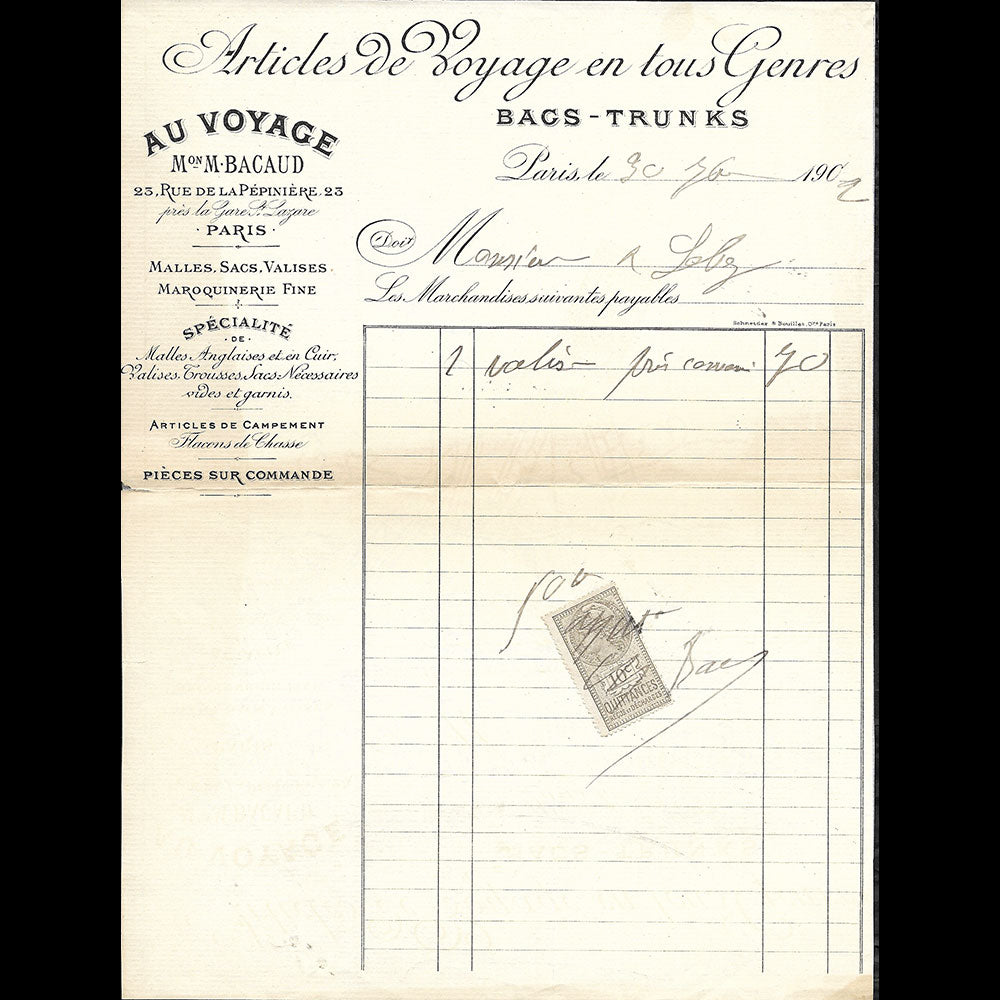 Articles de Voyage en tous Genres
BAGS - TRUNKS
AU VOYAGE
Mon M. BACAUD
23, RUE DE LA PÉPINIÈRE. 23
près la Gare St Lazare
· PARIS ·
MALLES, SACS, VALISES
MAROQUINERIE FINE
SPÉCIALITÉ
· DE ·
Malles Anglaises et en Cuir,
Valises, Trousses, Sacs, Nécessaires
vides et garnis.
ARTICLES DE CAMPEMENT
Flacons de Chasse
PIÈCES SUR COMMANDE
Paris, le 30 1902
Doit Monsieur
Les Marchandises suivantes payables
Schneider & Bouillet, Paris
1 valise prix convenu 70
10c
QUITTANCES
REÇUS ET DÉCHARGES